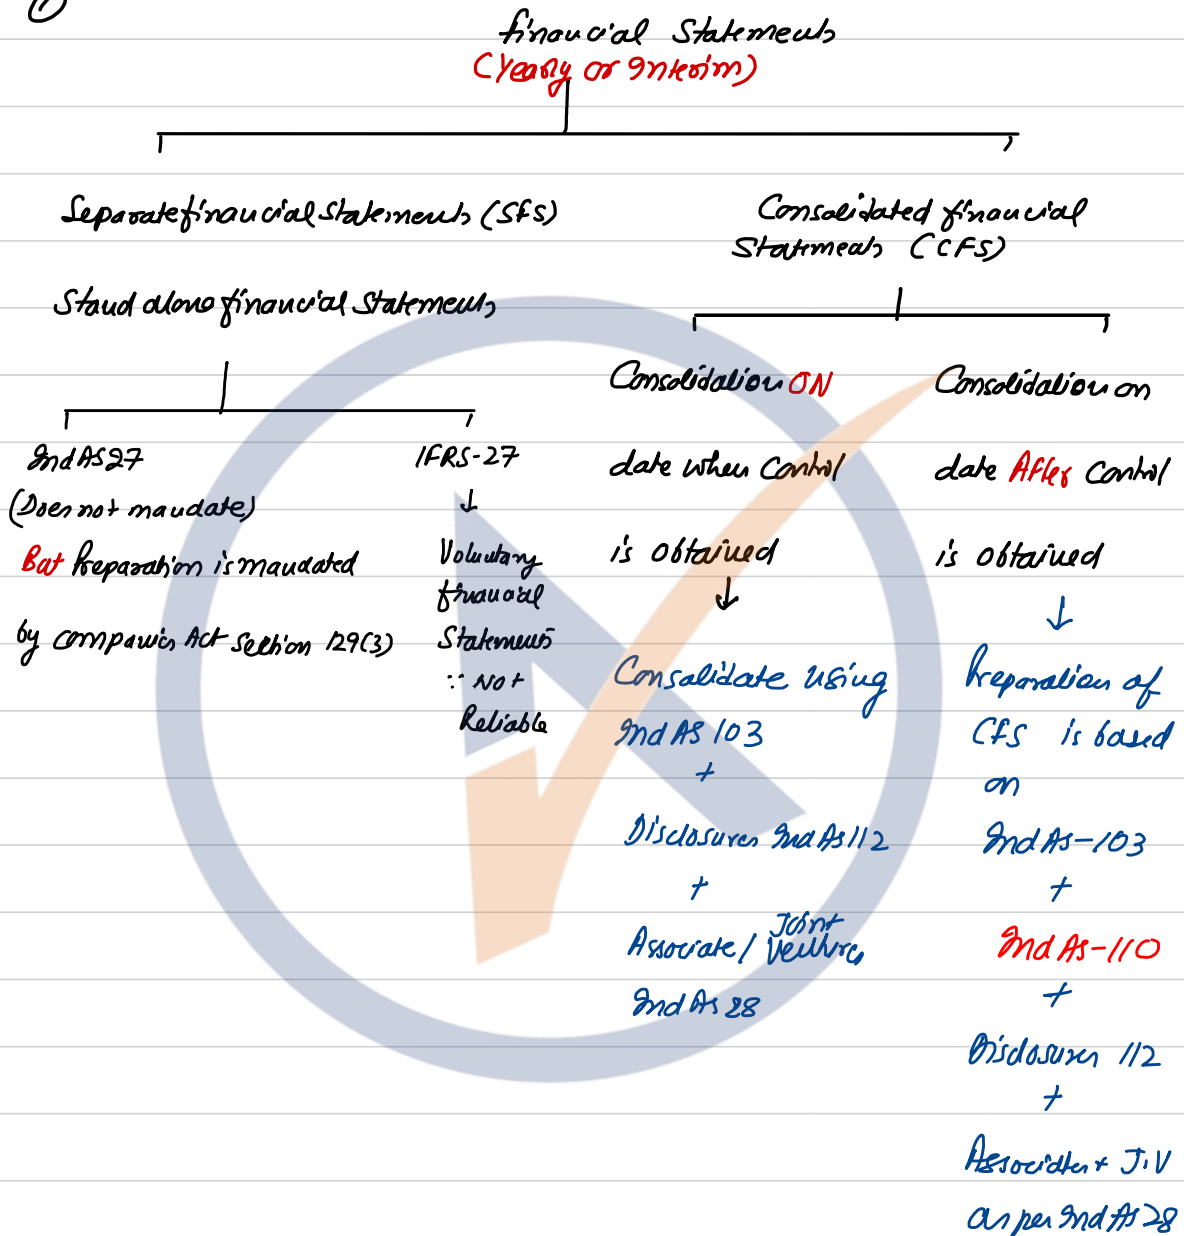 ①
Financial Statements
(Yearly or Interim)
Separate financial Statements (SFS)
Stand alone financial Statements
Ind AS 27
(Does not mandate)
But Preparation is mandated
by companies Act Section 129(3)
IFRS-27
↓
Voluntary
financial
Statements
∵ Not
Reliable
Consolidated financial
Statements (CFS)
Consolidation ON
date when Control
is obtained
↓
Consolidate using
Ind AS 103
+
Disclosures Ind AS 112
+
Associate / Joint Venture
Ind AS 28
Consolidation on
date After Control
is obtained
↓
Preparation of
CFS is based
on
Ind AS-103
+
Ind AS-110
+
Disclosures 112
+
Associates + J.V
as per Ind AS 28